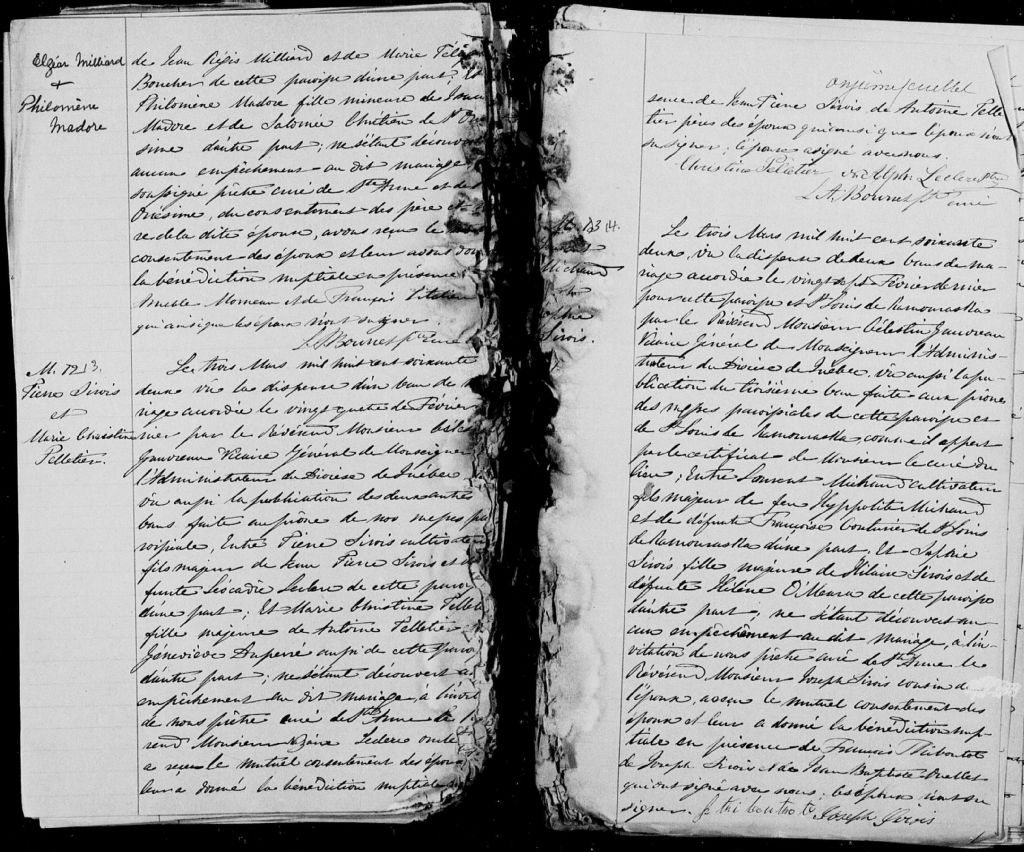 Elzéar Milliard
+
Philomène
Madore
de Jean Régis Milliard et de Marie
Boucher de cette paroisse d'une part, Et
Philomène Madore fille mineure de
Madore et de Salomée Chrétien de St
sime d'autre part; ne s'étant découvert
aucun empêchement au dit mariage
soussigné prêtre curé de Ste Anne et de
Onésime, du consentement des père et
re de la dite épouse, avons reçu le
consentement des époux et leur avons
la bénédiction nuptiale en présence
Moreau et de François
qui ainsi que les époux n'ont su signer.
L. A. Bournes Ptre Curé
M. 13.
Pierre Sirois
et
Marie Christine
Pelletier.
Le trois Mars mil huit cent soixante
deux vu la dispense d'un ban de
riage accordée le vingt quatre de Février
nier par le Révérend Monsieur
Gauvreau Vicaire Général de Monseigneur
l'Administrateur du Diocèse de Québec
vu aussi la publication des deux autres
bans faite au prône de nos messes pa
roissiale, Entre Pierre Sirois cultivateur
fils majeur de Jean Pierre Sirois et
funte Léocadie Leclerc de cette paroi
d'une part; Et Marie Christine Pellet
fille majeure de Antoine Pelletier
Géneviève Dupéré aussi de cette paroi
d'autre part; ne s'étant découvert
empêchement au dit mariage, à l'invit
de nous prêtre curé de Ste Anne le
rend Monsieur Leclerc oncle
a reçu le mutuel consentement des époux
leur a donné la bénédiction nuptiale
onzième feuillet
sence de Jean Pierre Sirois de Antoine Pelle
tier pères des époux qui ainsi que l'époux n'ont
su signer; l'épouse a signé avec nous.
Christine Péletier Alph. Leclerc Ptre
L. A. Bournes Ptre Curé
M. 14.
Michaud
Sophie
Sirois.
Le trois Mars mil huit cent soixante
deux, vu la dispense de deux bans de ma
riage accordée le vingt sept Février dernier
pour cette paroisse et St Louis de Kamouraska
par le Révérend Monsieur Célestin Gauvreau
Vicaire Général de Monseigneur l'Adminis
trateur du Diocèse de Québec, vu aussi la pu
blication du troisième ban faite aux prônes
des messes paroissiales de cette paroisse et
de St Louis de Kamouraska, comme il appert
par le certificat de Monsieur le curé du
lieu; Entre Laurent Michaud cultivateur
fils majeur de feu Hyppolite Michaud
et de défunte Françoise Couturier de St Louis
de Kamouraska d'une part, Et Sophie
Sirois fille majeure de Hilaire Sirois et de
défunte Hélène O'Meara de cette paroisse
d'autre part; ne s'étant découvert au
cun empêchement au dit mariage, à l'in
vitation de nous prêtre curé de Ste Anne le
Révérend Monsieur Joseph Sirois cousin de
l'époux, a reçu le mutuel consentement des
époux et leur a donné la bénédiction nup
tiale en présence de François Thiboutot
de Joseph Sirois et de Jean Baptiste Ouellet
qui ont signé avec nous; les époux n'ont su
signer. f thiboutot Joseph Sirois